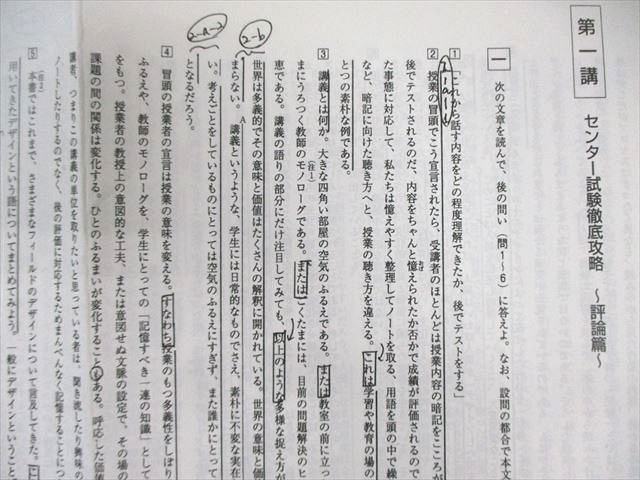 第一講 センター試験徹底攻略 ～評論篇～
一 次の文章を読んで、後の問い(問1～6)に答えよ。なお、設問の都合で本文
1 「これから話す内容をどの程度理解できたか、後でテストをする」
2 授業の冒頭でこう宣言されたら、受講者のほとんどは授業内容の暗記をこころが
後でテストされるのだ、内容をちゃんと憶えられたか否かで成績が評価されるので
た事態に対応して、私たちは憶えやすく整理してノートを取る、用語を頭の中で繰
など、暗記に向けた聴き方へと、授業の聴き方を違える。これは学習や教育の場の
とつの素朴な例である。
3 講義とは何か。大きな四角い部屋の空気のふるえである。または教室の前に立っ
(注1)
まにうろつく教師のモノローグである。またはごくたまには、目前の問題解決のヒ
恵である。講義の語りの部分にだけ注目してみても、以上のような多様な捉え方が
世界は多義的でその意味と価値はたくさんの解釈に開かれている。世界の意味と価
2-b
まらない。A講義というような、学生には日常的なものでさえ、素朴に不変な実在
い。考えごとをしているものにとっては空気のふるえにすぎず、また誰かにとって
2-a-2
となるだろう。
4 冒頭の授業者の宣言は授業の意味を変える。すなわち授業のもつ多義性をしぼり
ふるえや、教師のモノローグを、学生にとっての「記憶すべき一連の知識」として
をもつ。授業者の教授上の意図的な工夫、または意図せぬ文脈の設定で、その場の
課題の間の関係は変化する。ひとのふるまいが変化することもある。呼応した価値
講者、つまりこの講義の単位を取りたいと思っている者は、聞き流したり興味の
ノートしたりするのでなく、後の評価に対応するためまんべんなく記憶することにつ
(注2)
5 本書ではこれまで、さまざまなフィールドのデザインについて言及してきた。こ
用いてきたデザインという語についてまとめてみよう。一般にデザインということ